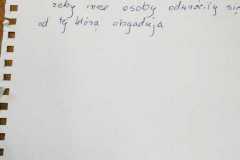 żeby inne osoby odwróciły się
od tej która obgaduja